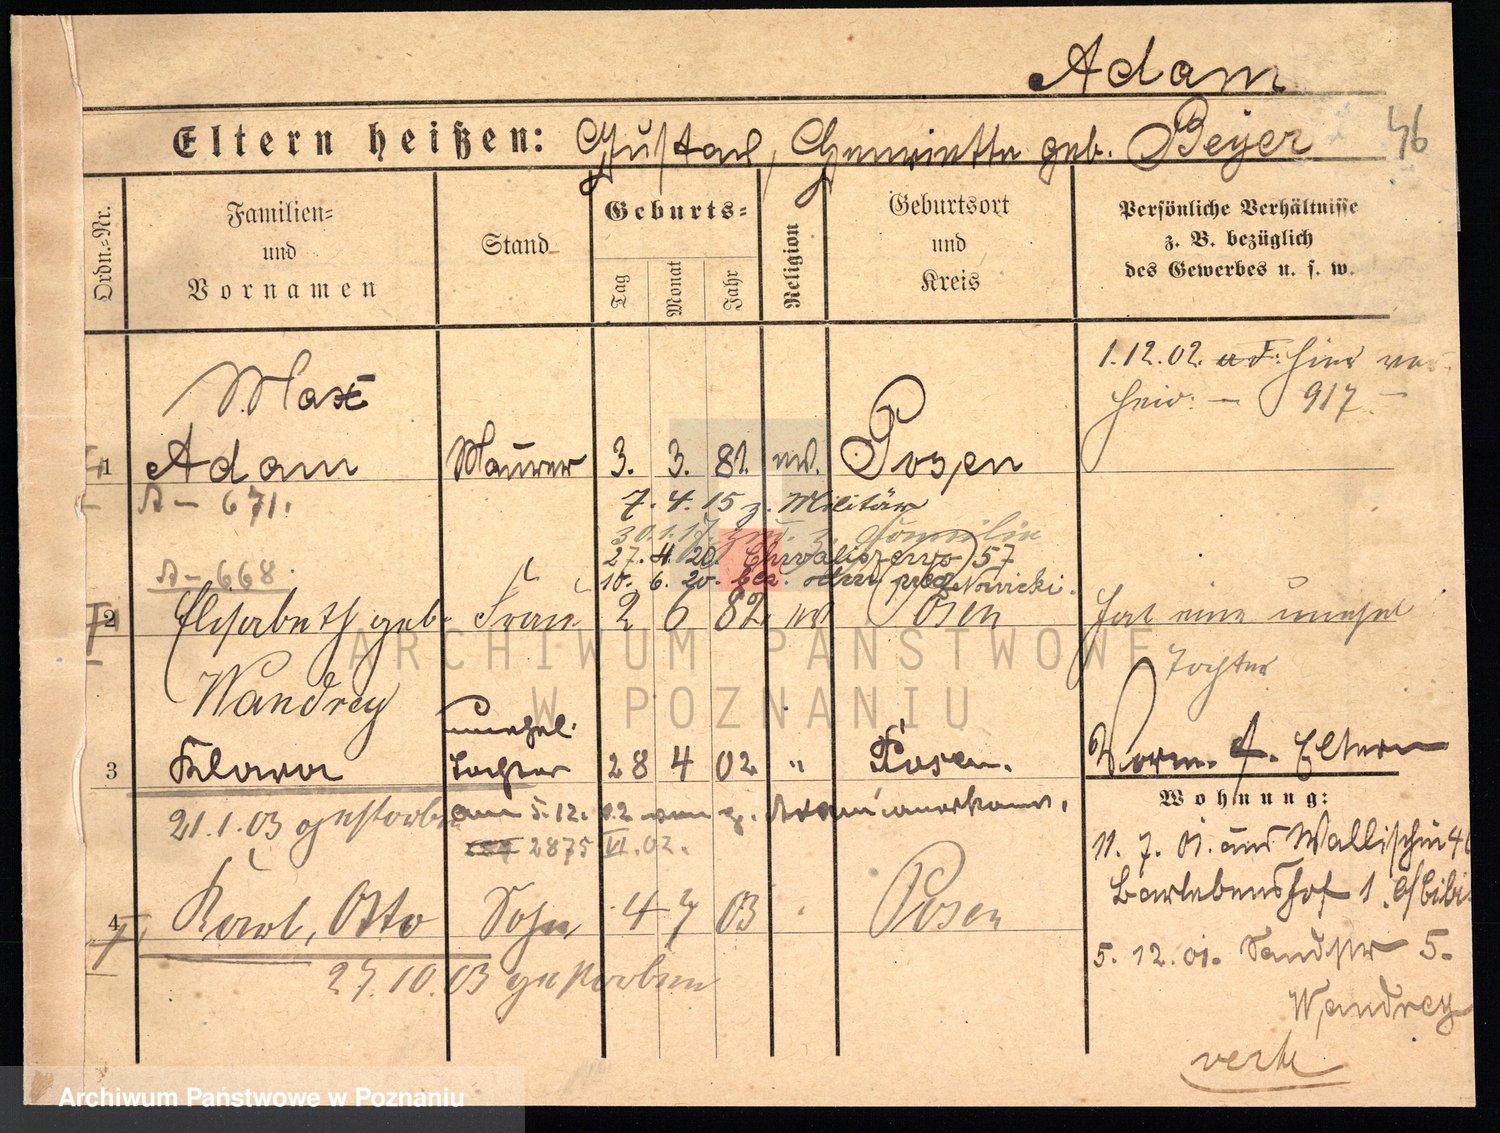 Adam
46
Eltern heißen: Gustav, Henriette geb. Beyer
Ordn.-Nr.
Familien-
und
Vornamen
Stand
Geburts-
Tag
Monat
Jahr
Religion
Geburtsort
und
Kreis
Persönliche Verhältnisse
z. B. bezüglich
des Gewerbes u. s. w.
1.12.02. hier ver-
heir. — 917 —
Max
1 Adam Maurer 3. 3. 81. ev. Posen
A — 671.
7. 4. 15 z. Militär
30.1.17. zur. z. Familie
27. 4. 20. Chwaliszewo 57
10. 6. 20.
A — 668.
2 Elisabeth geb. Frau 2 6 82 ev Posen
Wandrey
hat eine unehel
Tochter
unehel.
3 Klara Tochter 28 4 02 " Posen.
Vorm. f. Eltern
21.1.03 gestorben
am 5.12.02 vom
2875 VI. 02.
4 Karl, Otto Sohn 4 7 03 Posen
27.10.03 gestorben
Wohnung:
11. 7. 01. aus Wallischei 46
Bartebenshof 1.
5. 12. 01. Sandstr 5.
Wandrey
verte
ARCHIWUM PAŃSTWOWE
W POZNANIU
Archiwum Państwowe w Poznaniu